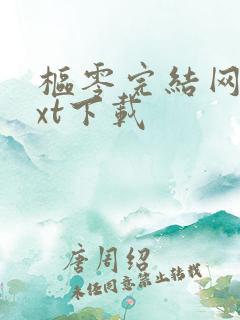 樞零完結网
xt下載
唐周绍
未经同意禁止转载